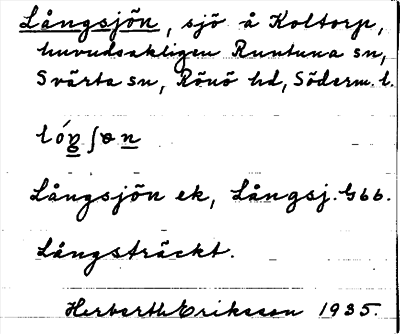 Långsjön, sjö å Koltorp,
huvudsakligen Runtuna sn,
Svärta sn, Rönö hd, Söderm. l.
Långsjön ek, Långsj. G66.
Långsträckt.
Herbert Eriksson 1935.